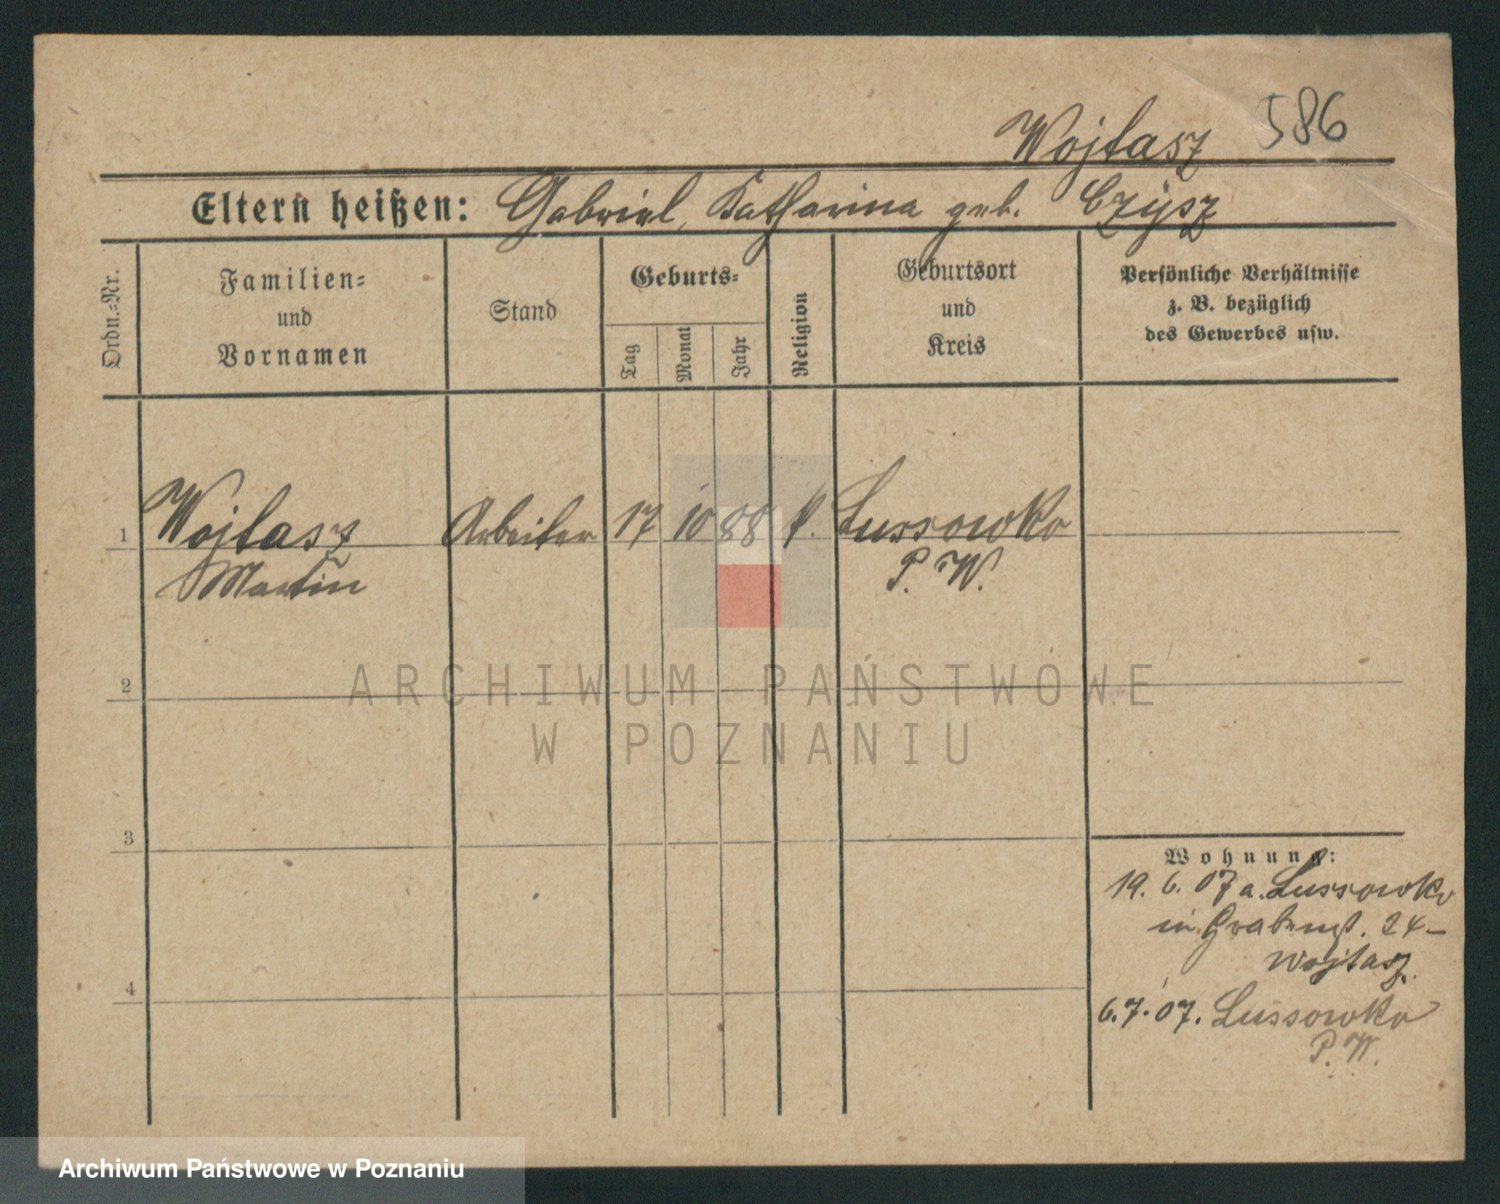 Wojtasz 586
Eltern heißen: Gabriel, Katharina geb. Czÿsz
Ordn.-Nr.
Familien-
und
Vornamen
Stand
Geburts-
Tag
Monat
Jahr
Religion
Geburtsort
und
Kreis
Persönliche Verhältnisse
z. B. bezüglich
des Gewerbes usw.
1 Wojtasz Arbeiter 17 10 88 k. Lussowko
Martin P. W.
2
3
4
Wohnung:
19. 6. 07 a. Lussowko
in Grabenst. 24-
Wojtasz.
6. 7. 07. Lussowko
P. W.
ARCHIWUM PAŃSTWOWE
W POZNANIU
Archiwum Państwowe w Poznaniu